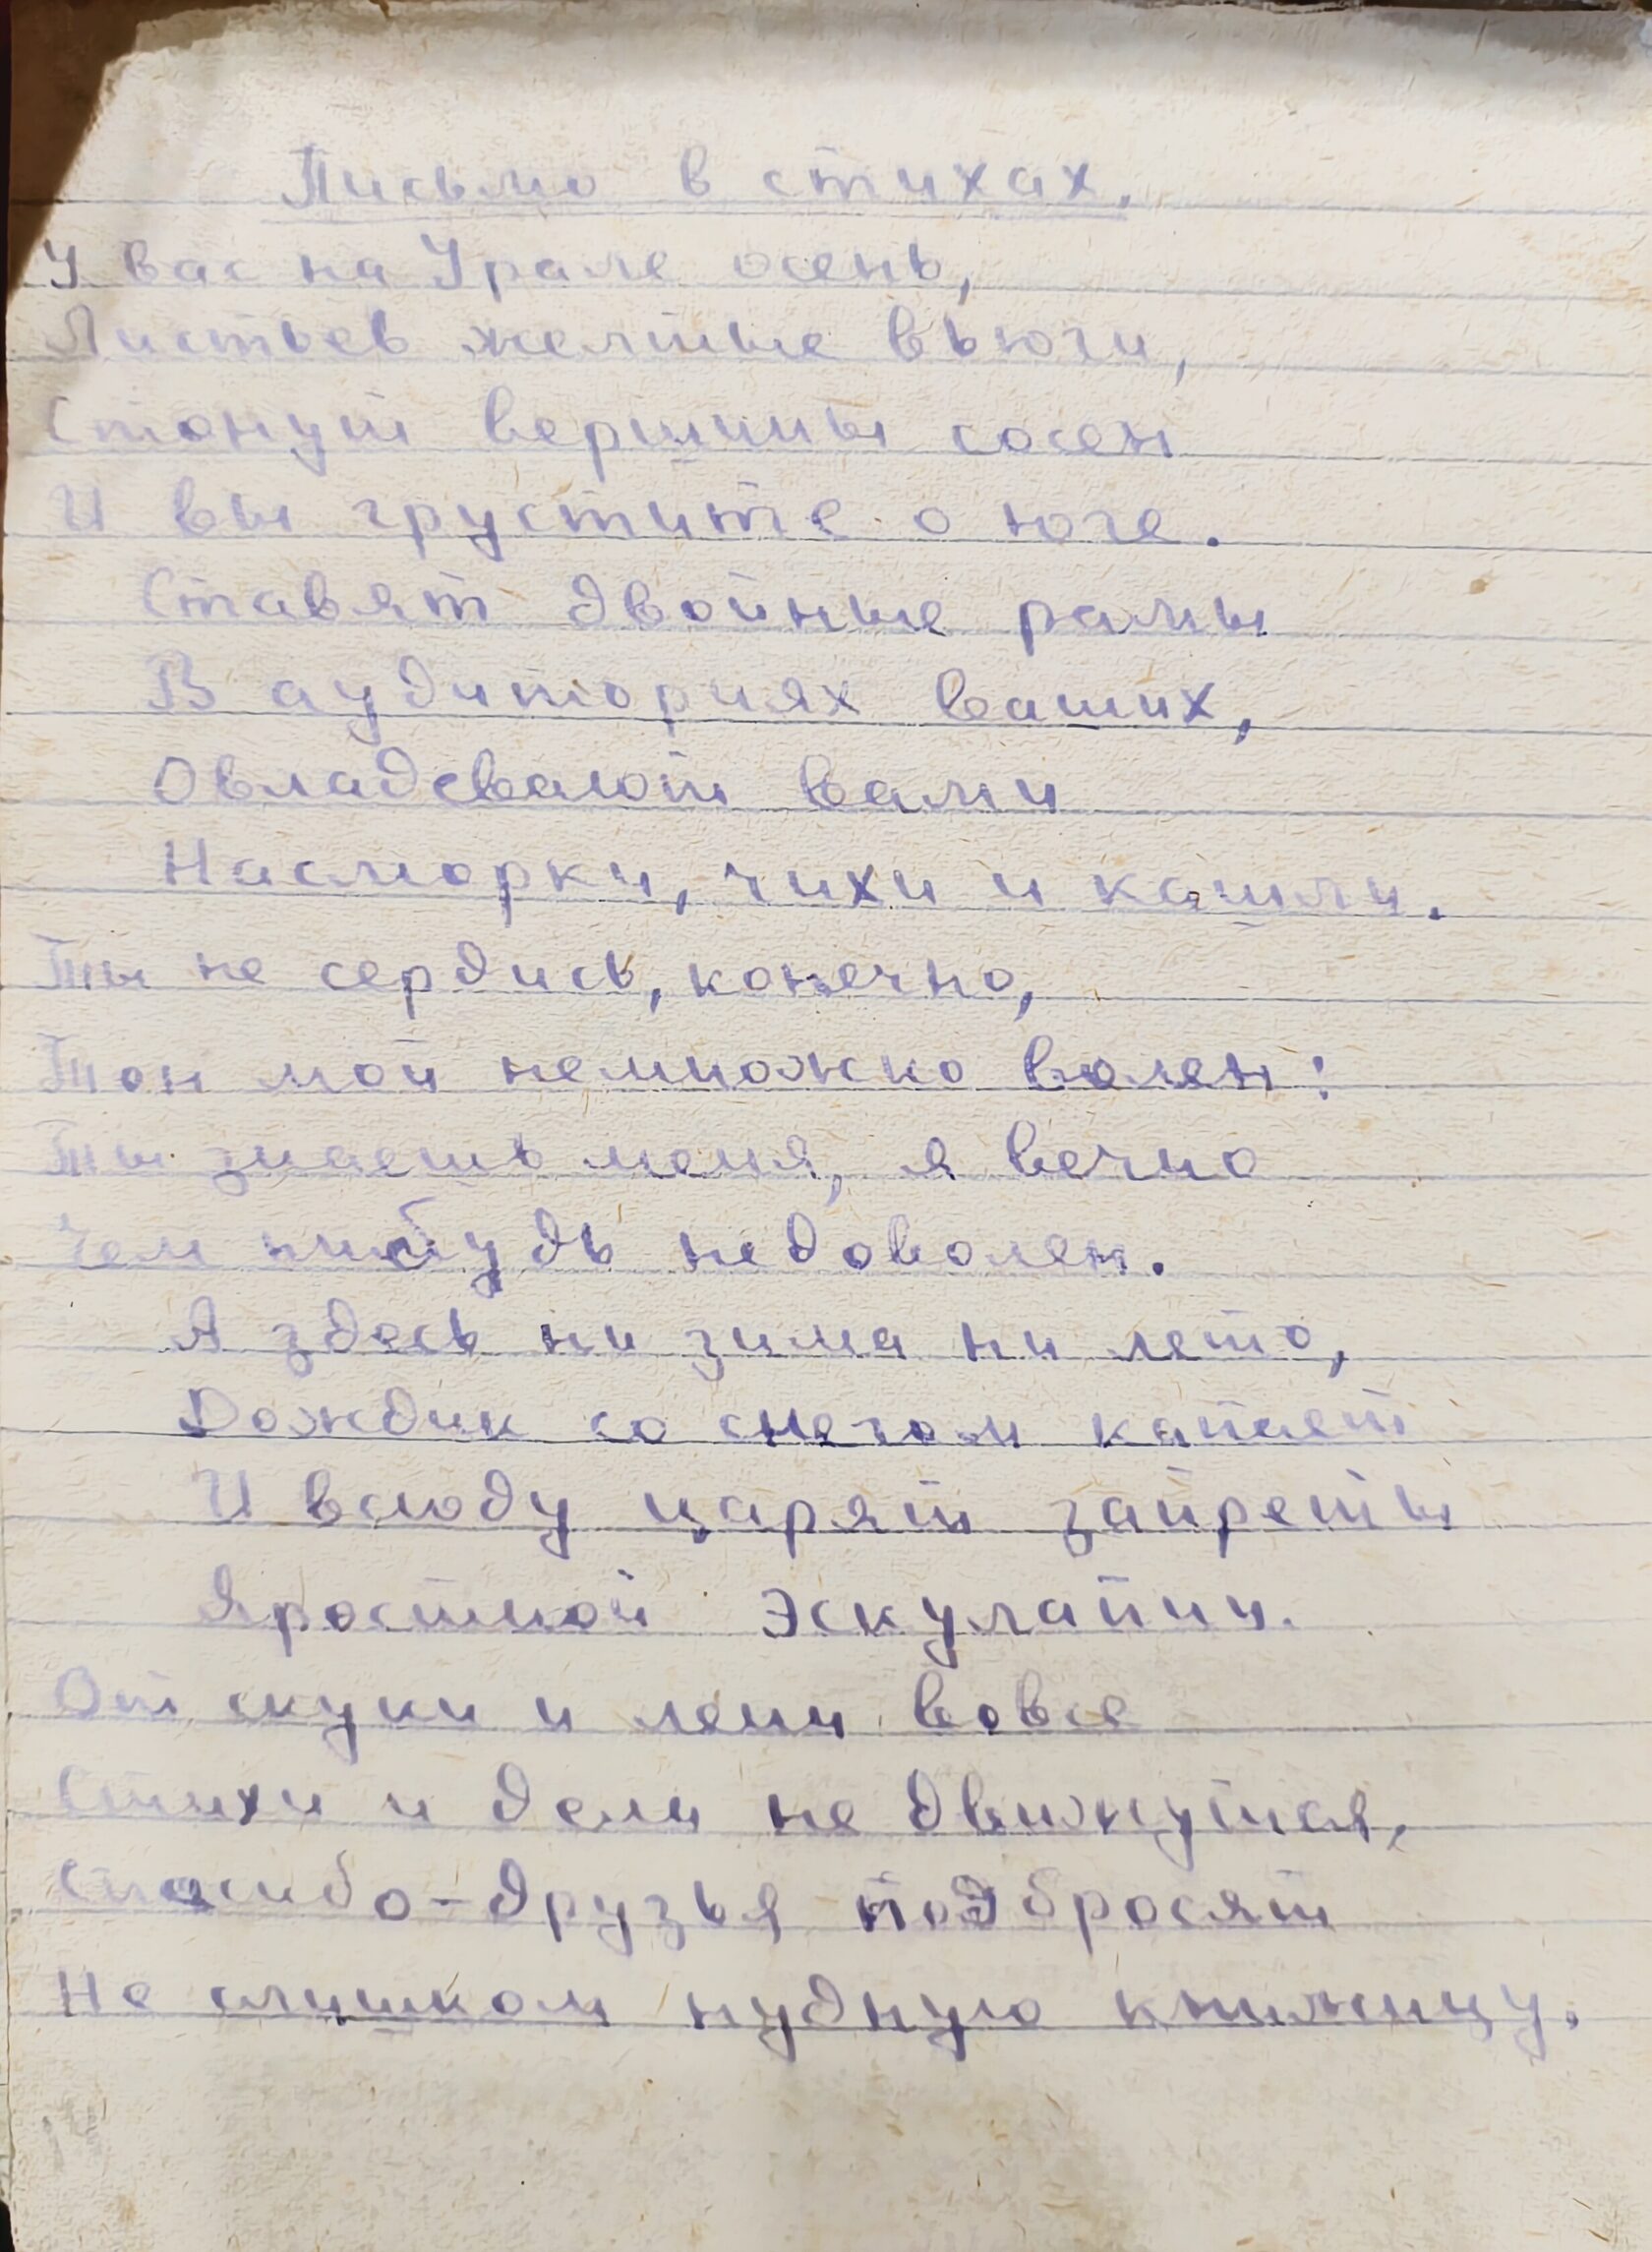 Письмо в стихах.
У вас на Урале осень,
Листьев желтые вьюги,
Стонут вершины сосен
И вы грустите о юге.
Ставят двойные рамы
В аудиториях ваших,
Овладевают вами
Насморки, чихи и кашли.
Ты не сердись, конечно,
Тон мой немножко волен:
Ты знаешь меня, я вечно
Чем нибудь недоволен.
А здесь ни зима ни лето,
Дождик со снегом капает
И всюду царят запреты
Яростной Эскулапии.
От скуки и лени вовсе
Стихи и дела не движутся,
Спасибо-друзья подбросят
Не слишком нудную книжицу.